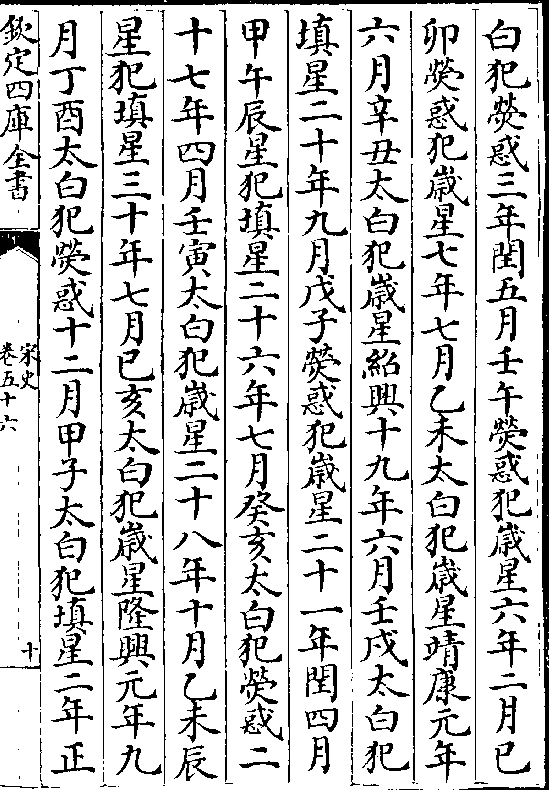 白犯熒惑三年閏五月壬午熒惑犯歳星六年二月已
卯熒惑犯歳星七年七月乙未太白犯歳星靖康元年
六月辛丑太白犯歳星紹興十九年六月壬戌太白犯
填星二十年九月戊子熒惑犯歳星二十一年閏四月
甲午辰星犯填星二十六年七月癸亥太白犯熒惑二
十七年四月壬寅太白犯歳星二十八年十月乙未辰
星犯填星三十年七月已亥太白犯歳星隆興元年九
月丁酉太白犯熒惑十二月甲子太白犯填星二年正
欽定四庫全書
宋史
卷五十六
十